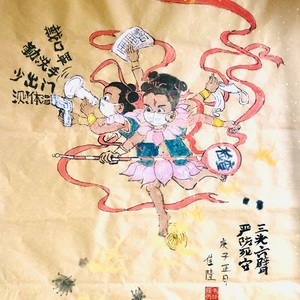 戴口罩
勤洗手
少出门
测体温
检查
三头六臂
严防死守
庚子正月